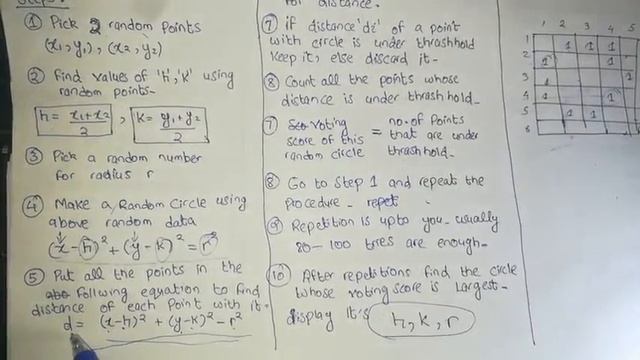 Steps:
① Pick 2 random points
(x₁,y₁), (x₂,y₂)
② find values of 'h','k' using
random points-
h = x₁+x₂/2 , k = y₁+y₂/2
③ Pick a random number
for radius r
④ Make a Random Circle using
above random data
(x-h)²+(y-k)²=r²
⑤ Put all the points in the
follwing equation to find
distance of each point with it-
d= (x-h)² + (y-k)² - r²
for distance.
⑦ if distance 'di' of a point
with circle is under thrashhold
keep it, else discard it-
⑧ Count all the points whose
distance is under thrashhold-
⑦ voting
score of this
random circle = no. of points
that are under
thrashhold-
⑧ Go to Step 1 and repeats the
procedure- repet
⑨ Repetition is upto you- usually
80-100 tries are enough-
⑩ After repetitions find the circle
whose voting score is largest-
display it's h, k, r
1 2 3 4 5
1
2
3
4
5
6
1 1 1
1 1
1
1 1
1 1